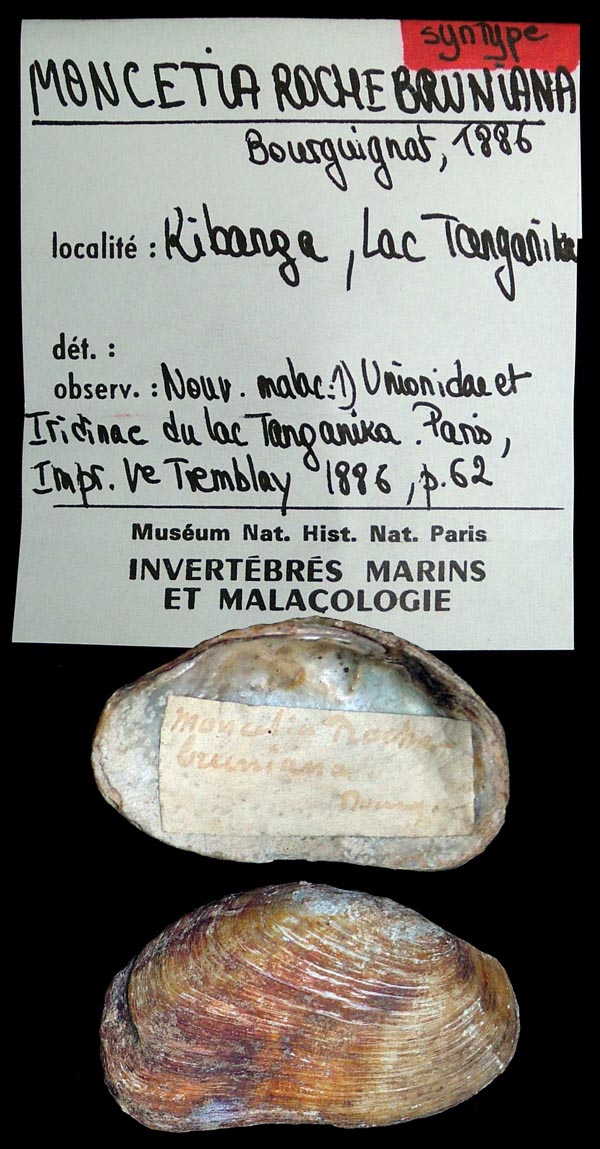 syntype
MONCETIA ROCHEBRUNIANA
Bourguignat, 1886
localité : Kibanga, Lac Tanganika
dét. :
observ. : Nouv. malac. 1) Unionidae et
Iridinae du lac Tanganika. Paris,
Impr. Ve Tremblay 1886, p.62
Muséum Nat. Hist. Nat. Paris
INVERTÉBRÉS MARINS
ET MALACOLOGIE
Moncetia Roche-
bruniana.
Bourg.